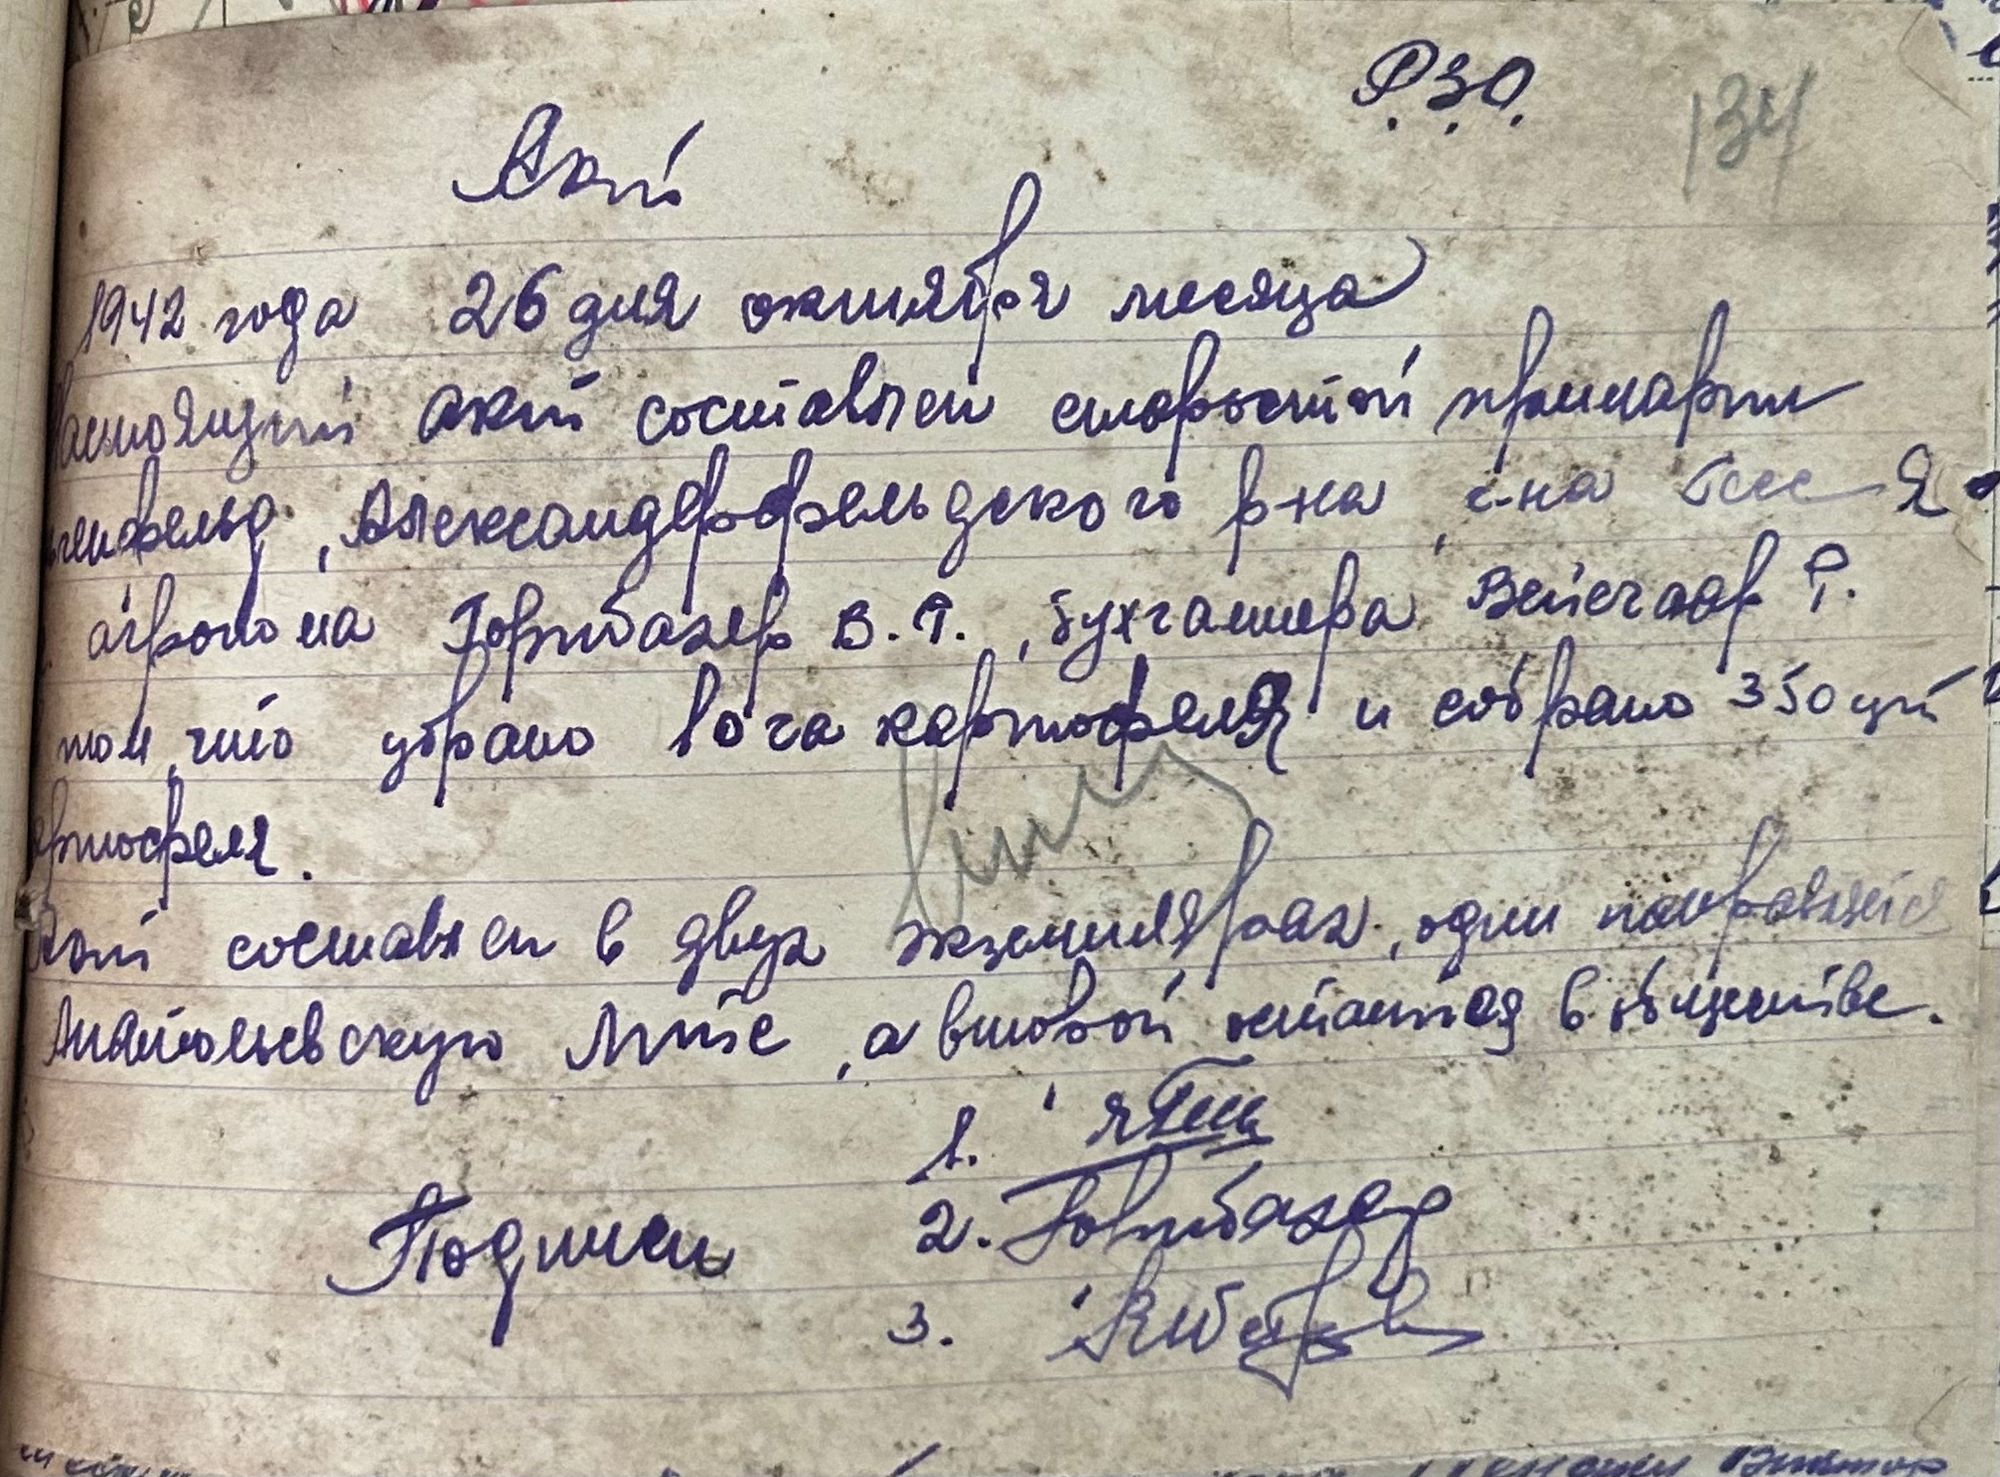 Р.З.О.
134
Акт
1942 года 26 дня октября месяца
Настоящий акт составлен старостой примарии
Александерфельдского р-на, с-на Гесс Я.
агронома Горнбахер В. Ф., бухгалтера Р.
том, что убрано 10 га картофеля и собрано 350 цн
артофеля.
Акт составлен в двух экземплярах, один направляется
Анатольевскую Мтс, а второй остается в обществе.
1. ЯГесс
Подписи 2. Горнбахер
3.